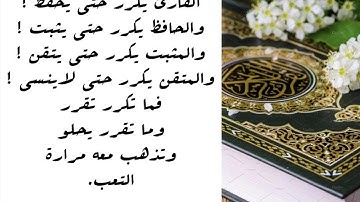 القارئ يكرر حتى يحفظ !
والحافظ يكرر حتى يثبت !
والمثبت يكرر حتى يتقن !
والمتقن يكرر حتى لاينسى !
فما تكرر تقرر
وما تقرر يحلو
وتذهب معه مرارة
التعب.